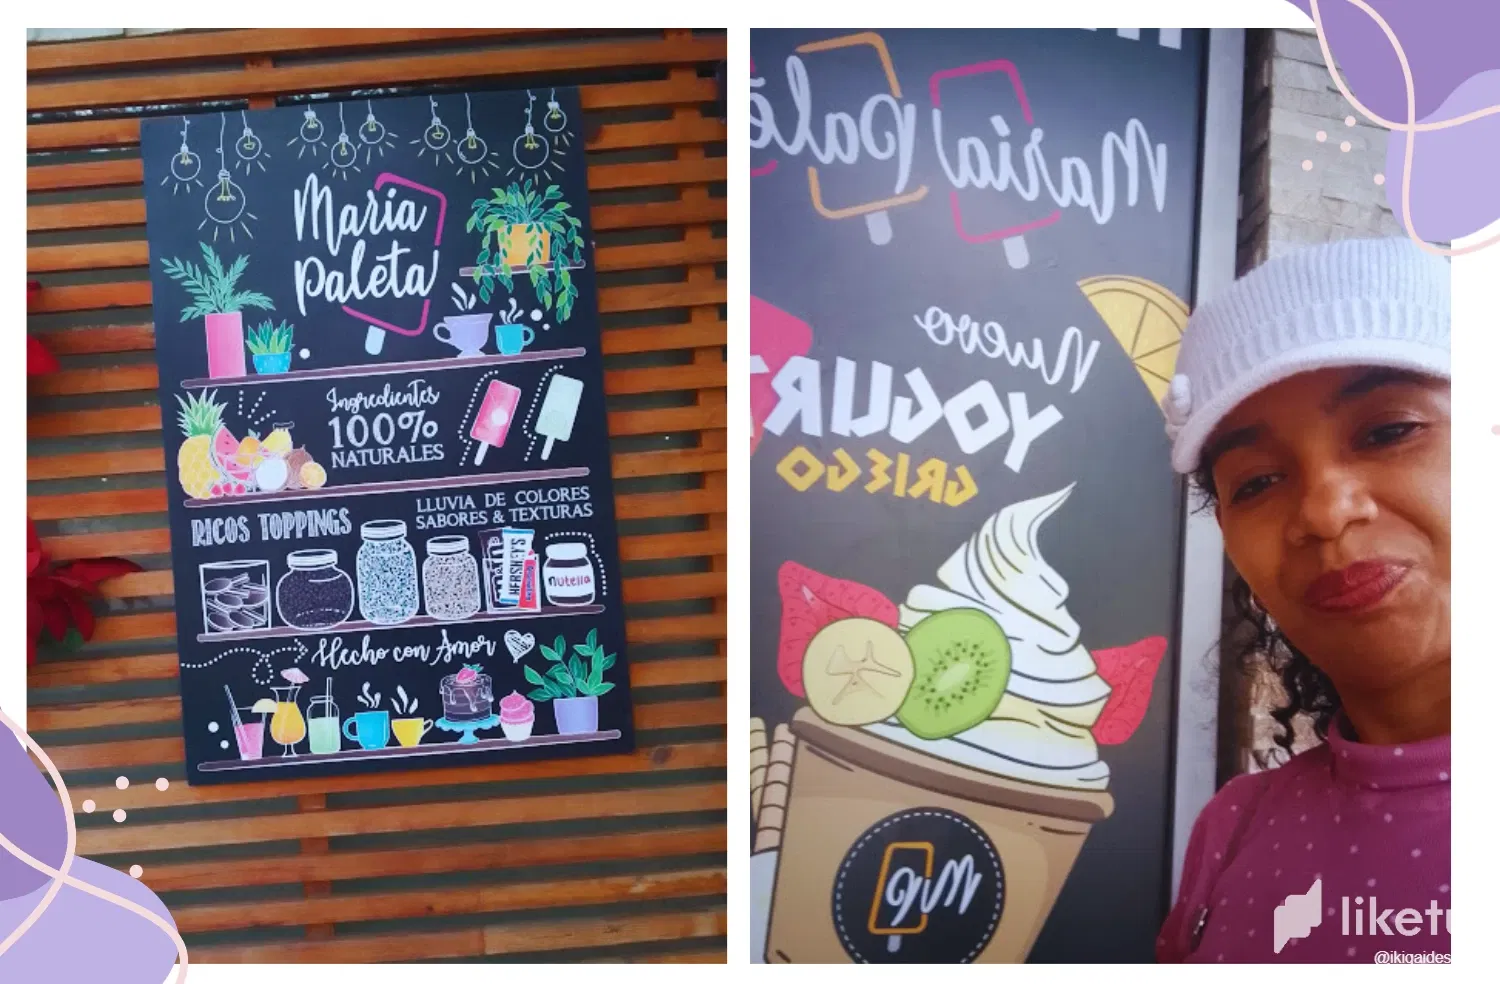 María
Paleta
Ingredientes
100%
NATURALES
RICOS TOPPINGS
LLUVIA DE COLORES
SABORES & TEXTURAS
HERSHEY'S
nutella
Hecho con Amor
María Palé
Nuevo
YOGUR
GRIEGO
MP
liketu
@ikigaides